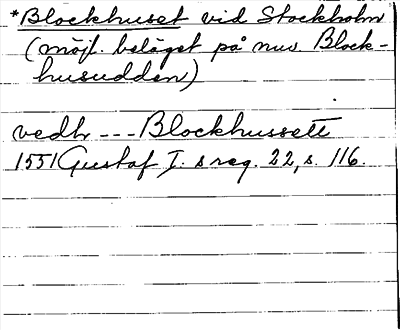 *Blockhuset vid Stockholm
(möjl. beläget på nuv Block-
husudden)
vedh --- Blockhussett
1551 Gustaf I. s reg. 22, s. 116.